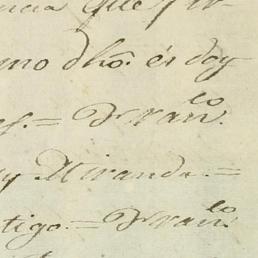 que
mo dho. és doy
= Fran.co
y Miranda. =
tigo. = Fran.co